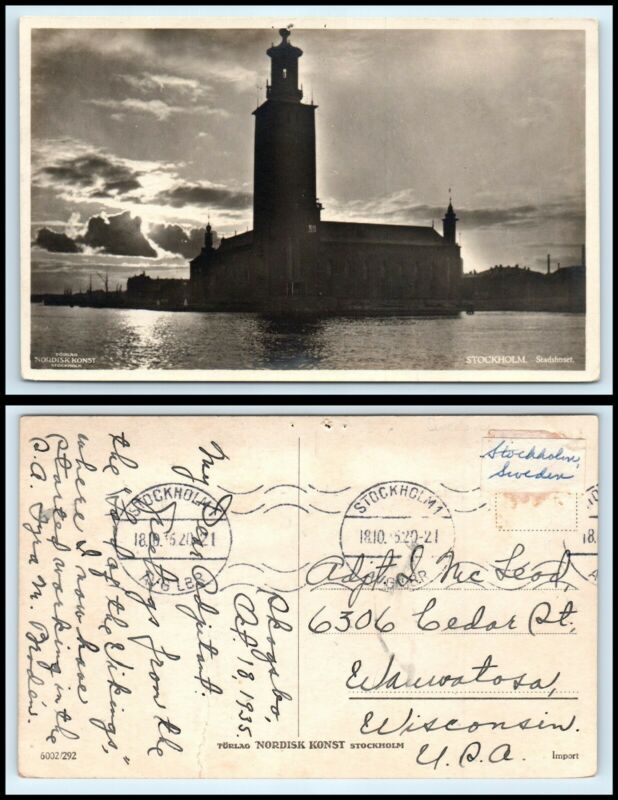 FÖRLAG
NORDISK KONST
STOCKHOLM
STOCKHOLM. Stadshuset.
Stockholm,
Sweden
STOCKHOLM 1
18.10. 35.20-21
STOCKHOLM 1
18.10. 35.20-21
18.
Skogsbo,
Oct. 18, 1935.
My Dear Adjutant.
Greetings from the
the "Land of the Vikings,"
where I now have
started working in the
S.A. Tyra M. Brodén.
Adjt. L. Mc Leod,
6306 Cedar St.
Wauwatosa,
Wisconsin.
U.S.A.
FÖRLAG NORDISK KONST STOCKHOLM
6002/292
Import